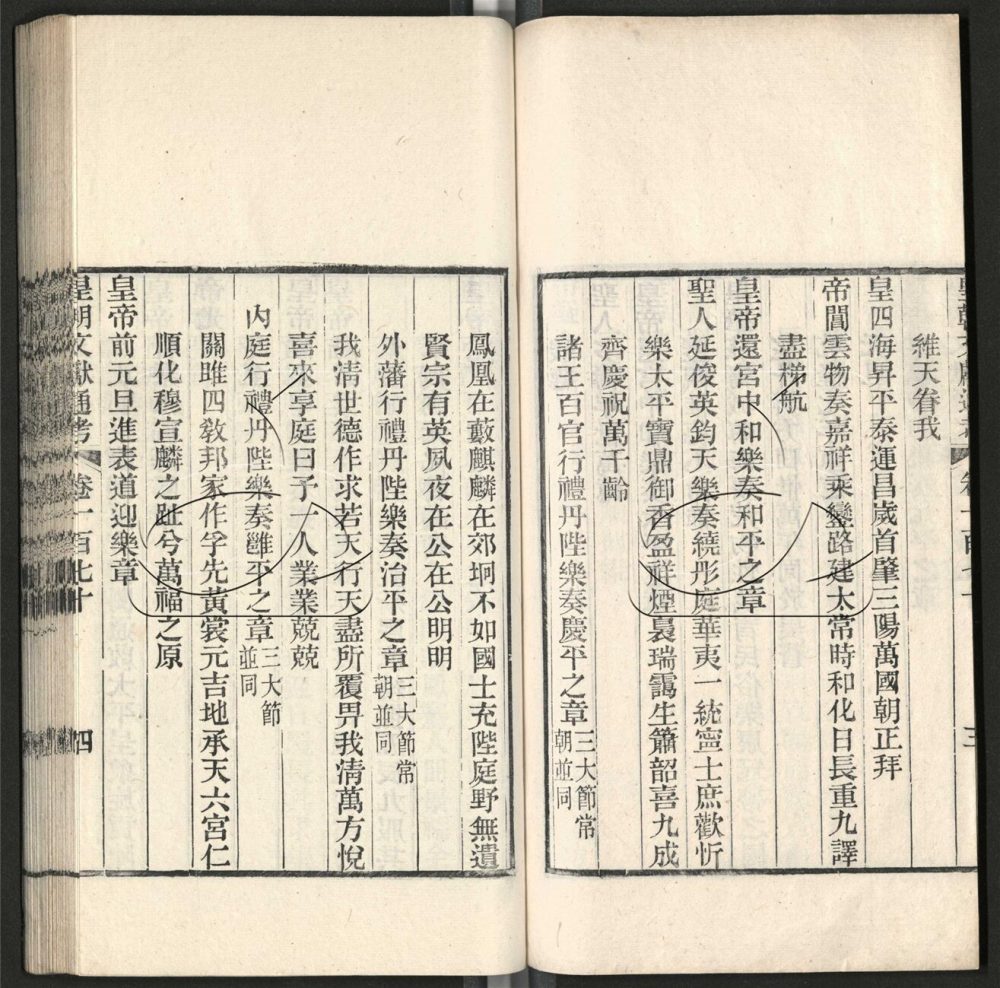 維天眷我
皇四海昇平泰運昌歲首肇三陽萬國朝正拜
帝閶雲物奏嘉祥乘鑾路建太常時和化日長重九譯
盡梯航
皇帝還宮中和樂奏和平之章
聖人延俊英鈞天樂奏繞彤庭華夷一統寧士庶歡忻
樂太平寶鼎御香盈祥煙裊瑞靄生簫韶喜九成
齊慶祝萬千齡
諸王百官行禮丹陛樂奏慶平之章三大節常
朝並同
鳳凰在藪麒麟在郊坰不如國士充陛庭野無遺
賢宗有英夙夜在公在公明明
外藩行禮丹陛樂奏治平之章三大節常
朝並同
我清世德作求若天行天盡所覆畀我清萬方悅
喜來享庭曰予一人業業兢兢
內庭行禮丹陛樂奏雝平之章三大節
並同
關雎四敎邦家作孚先黃裳元吉地承天六宮仁
順化穆宣麟之趾兮萬福之原
皇帝前元旦進表道迎樂章
皇朝文獻通考 卷一百七十 四